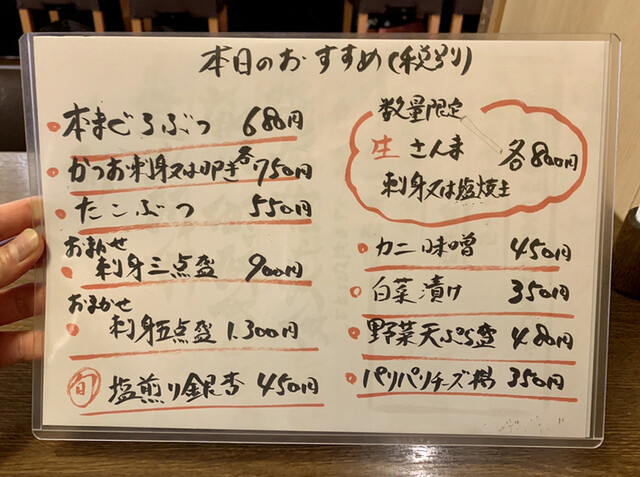 本日のおすすめ(税別)
本まぐろぶつ 680円
かつお刺身又は叩き 各750円
たこぶつ 550円
おまかせ
刺身三点盛 900円
おまかせ
刺身五点盛 1.300円
旬 塩煎り銀杏 450円
数量限定
生さんま 各800円
刺身又は塩焼き
カニ味噌 450円
白菜漬け 350円
野菜天ぷら盛 480円
パリパリチーズ 350円